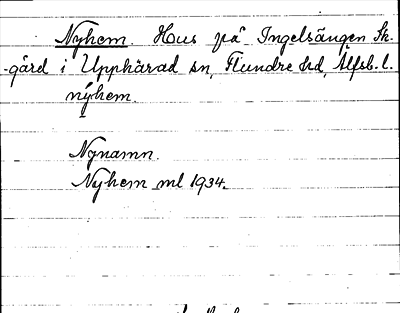 Nyhem. Hus på Ingelsängen Sk.
-gård i Upphärad sn, Flundre hd, Älfsb. l.
nýhem.
Nynamn.
Nyhem ml 1934.